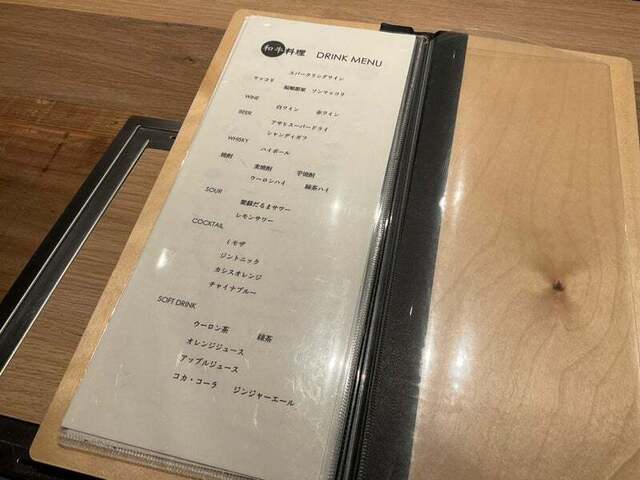 和牛料理 DRINK MENU
スパークリングワイン
マッコリ 福順都家 ソンマッコリ
WINE 白ワイン 赤ワイン
BEER アサヒスーパードライ
シャンディガフ
WHISKY ハイボール
焼酎 麦焼酎 芋焼酎
ウーロンハイ 緑茶ハイ
SOUR だるまサワー
レモンサワー
COCKTAIL
ミモザ
ジントニック
カシスオレンジ
チャイナブルー
SOFT DRINK
ウーロン茶 緑茶
オレンジジュース
アップルジュース
コカ・コーラ ジンジャーエール